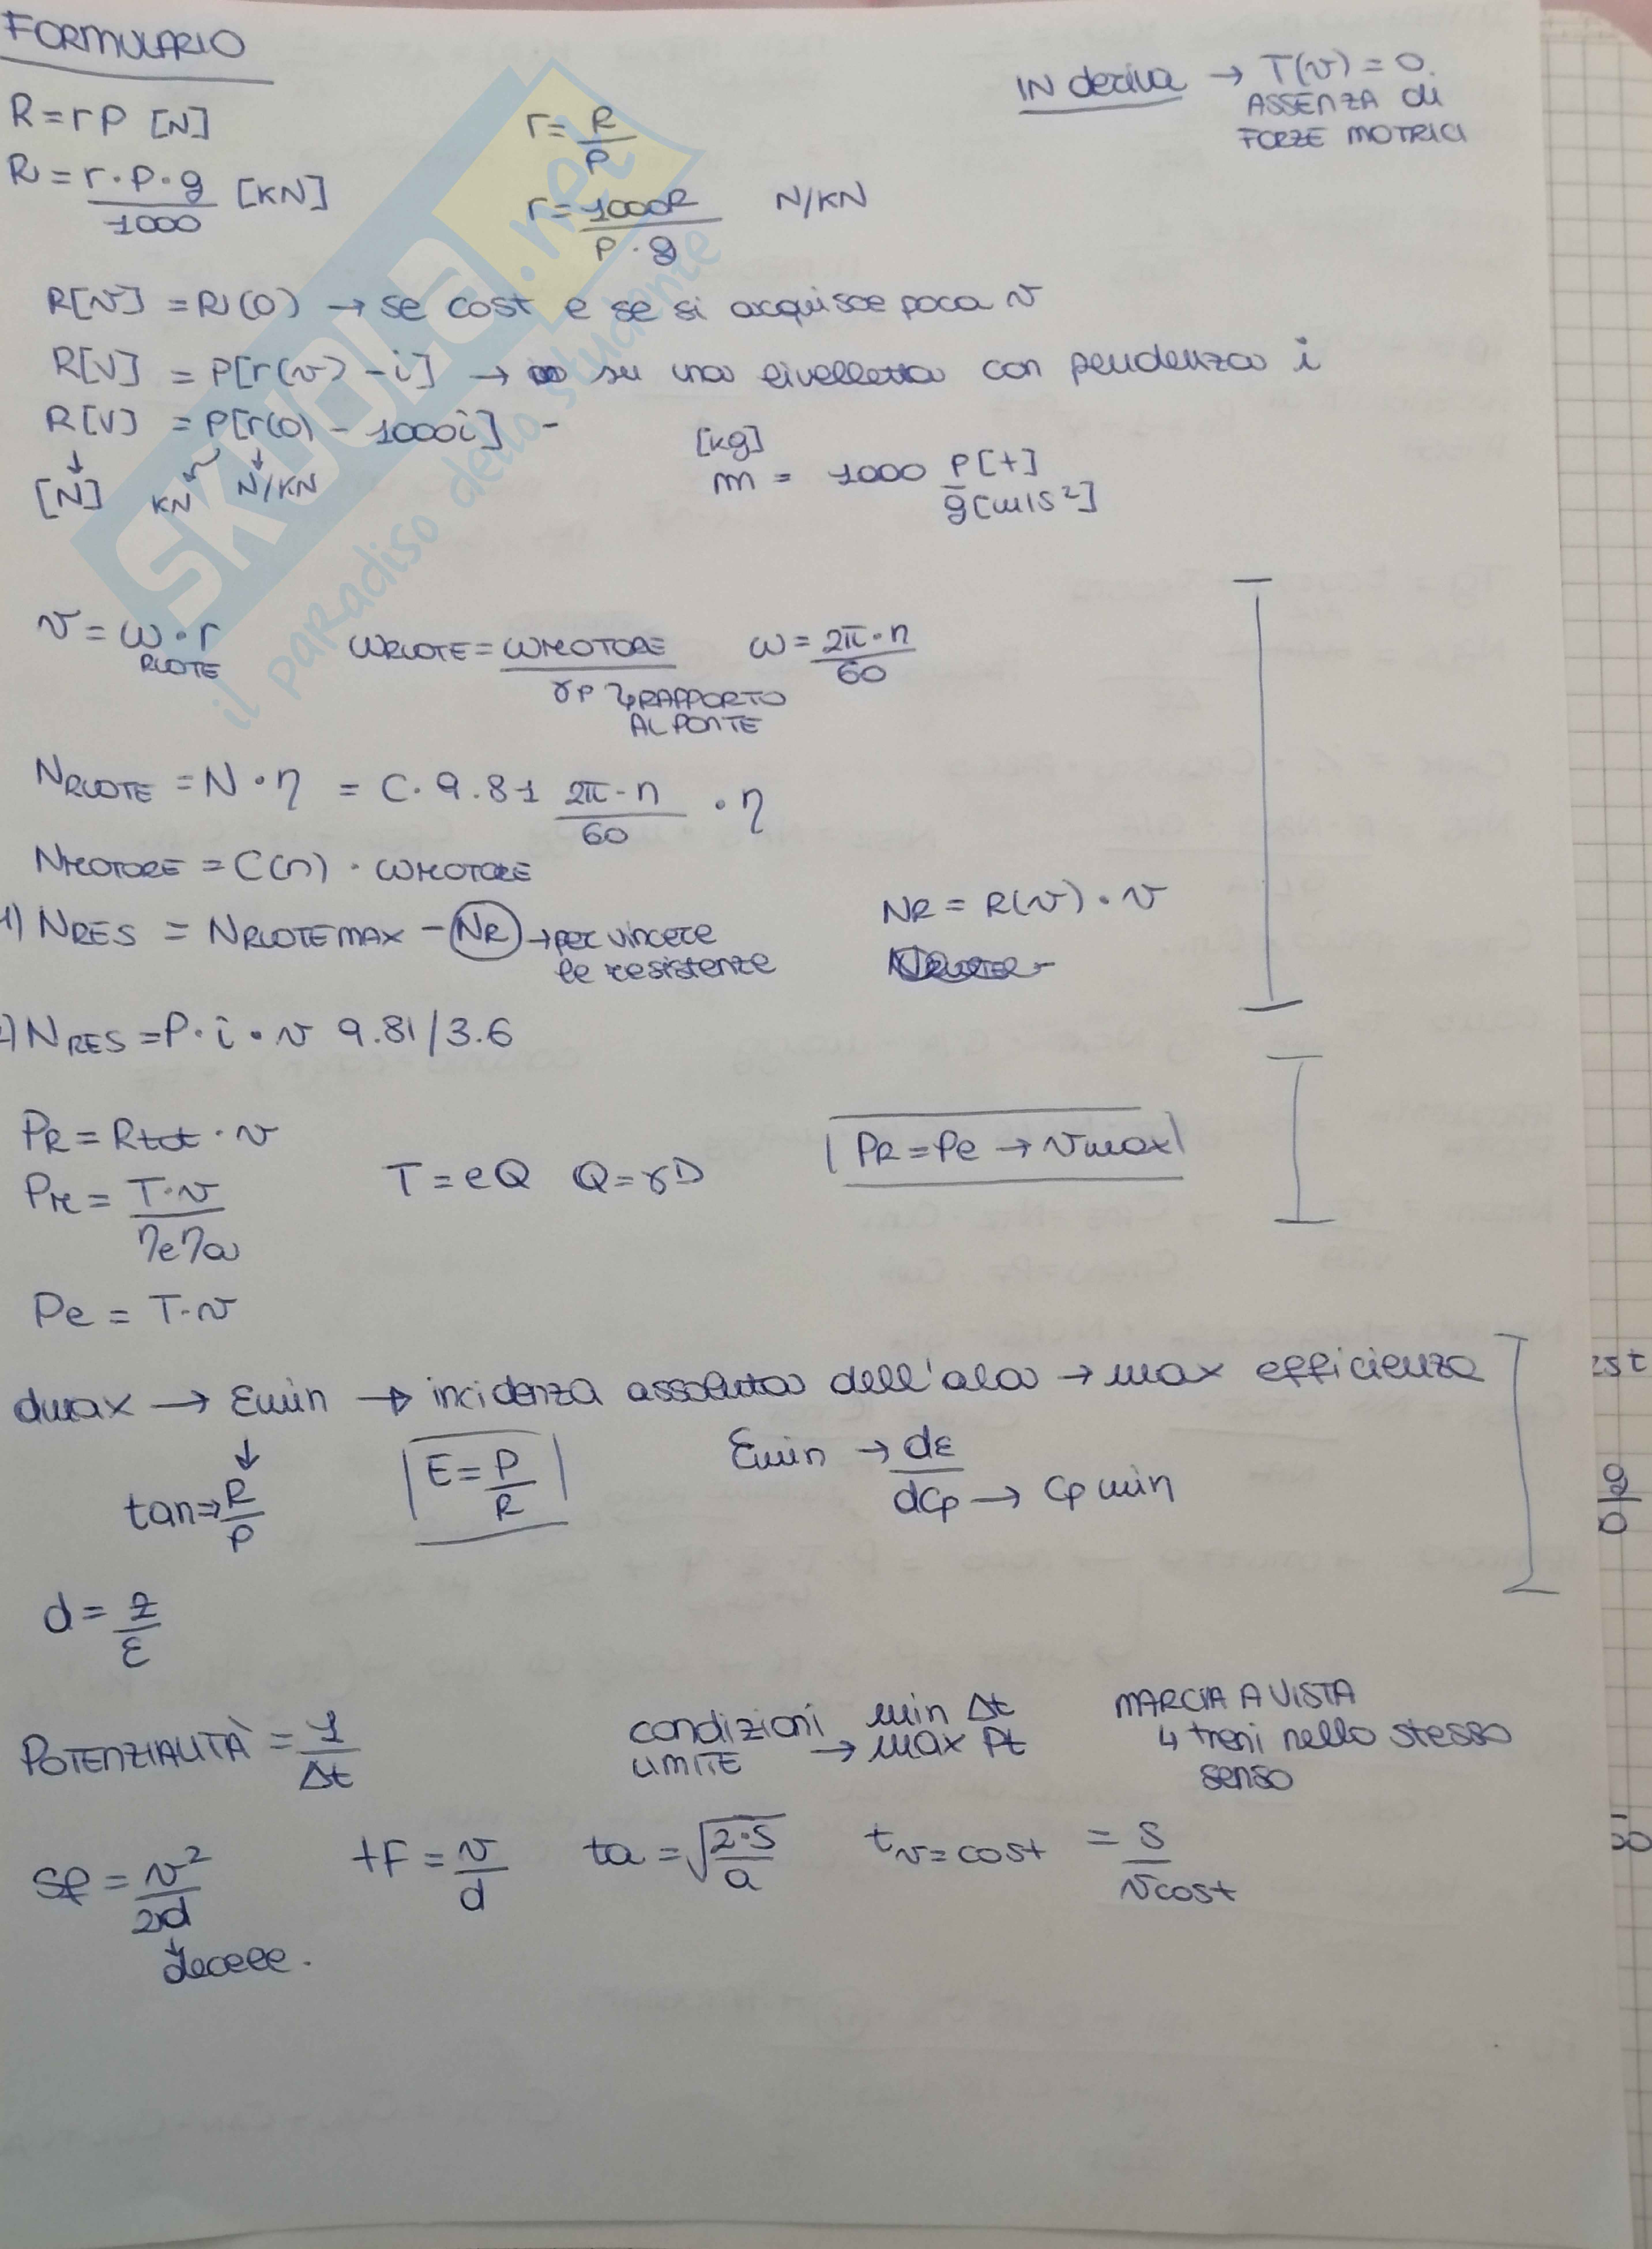 FORMULARIO
IN deriva → T(v) = 0.
ASSENZA di
FORZE MOTRICI
R = rP [N]
r = R/P
R = r·P·g/1000 [KN]
r = 1000R/P·g N/KN
R[v] = R(0) → se cost e se si acquisce poca v
R[V] = P[r(v) - i] → su una livelletta con pendenza i
R[V] = P[r(0) - 1000i] -
[N] KN N/KN
[kg]
m = 1000 P[t]/g[m/s²]
v = ω·r
RUOTE
ωRUOTE = ωMOTORE/γP ↳ RAPPORTO AL PONTE
ω = 2π·n/60
NRUOTE = N·η = C·9.81 2π·n/60 · η
NMOTORE = C(n) · ωMOTORE
1) NRES = NRUOTE MAX - NR → per vincere le resistenze
NR = R(v)·v
2) NRES = P·i·v 9.81/3.6
PR = Rtot·v
Pm = T·v/ηeηa
T = eQ Q = γD
PR = Pe → vmax
Pe = T·v
dmax → εmin → incidenza assoluta dell'ala → max efficienza
↓
tan → R/P
E = P/R
εmin → dε/dCp → Cp min
d = z/ε
POTENZIALITÀ = 1/Δt
condizioni LIMITE → min Δt
max Pt
MARCIA A VISTA
4 treni nello stesso
senso
Sf = v²/2d
↓
decele.
tF = v/d
ta = √2·S/a
tv=cost = S/vcost
SKUOLA.net
il paradiso dello studente